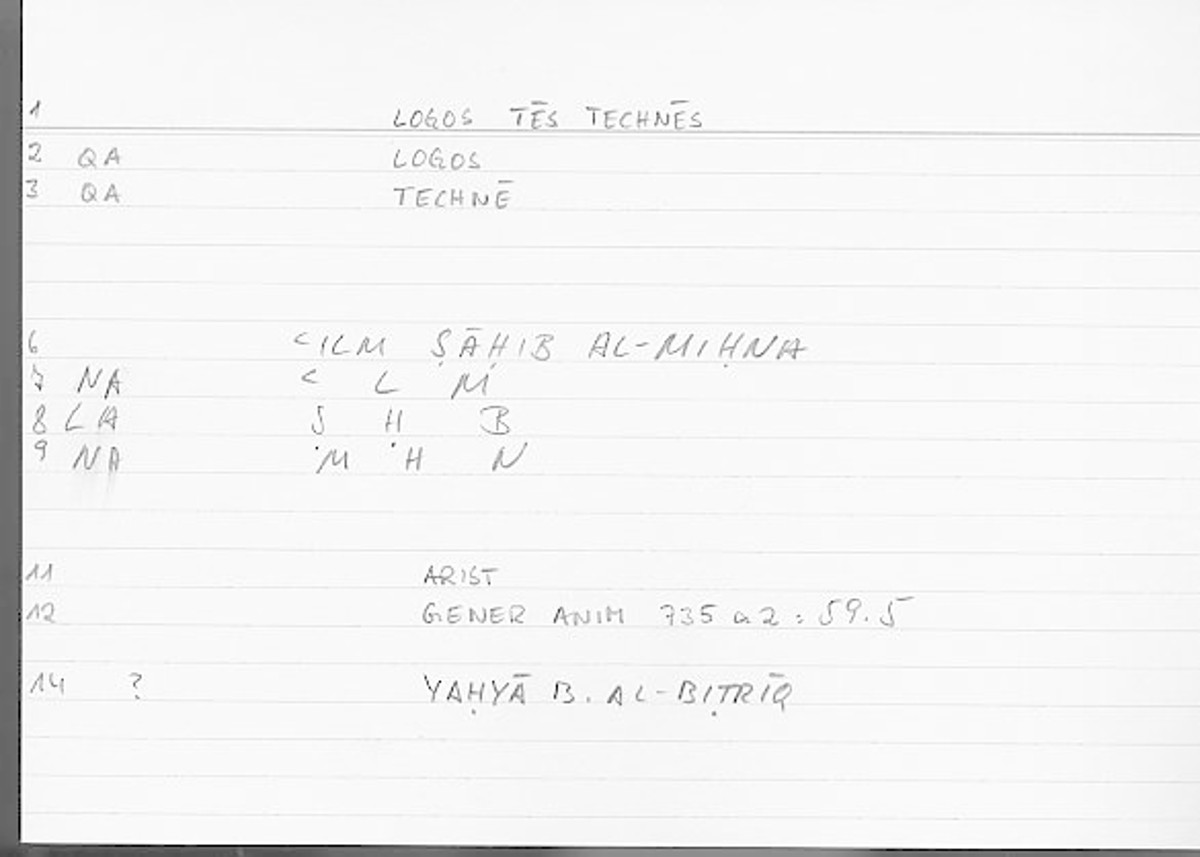 1 LOGOS TĒS TECHNĒS
2 QA LOGOS
3 QA TECHNĒ
6 <ILM ṢĀḤIB AL-MIḤNA
7 NA < L M
8 LA S H B
9 NA M H N
11 ARIST
12 GENER ANIM 735 a 2 : 59.5
14 ? YAḤYĀ B. AL-BIṬRĪQ